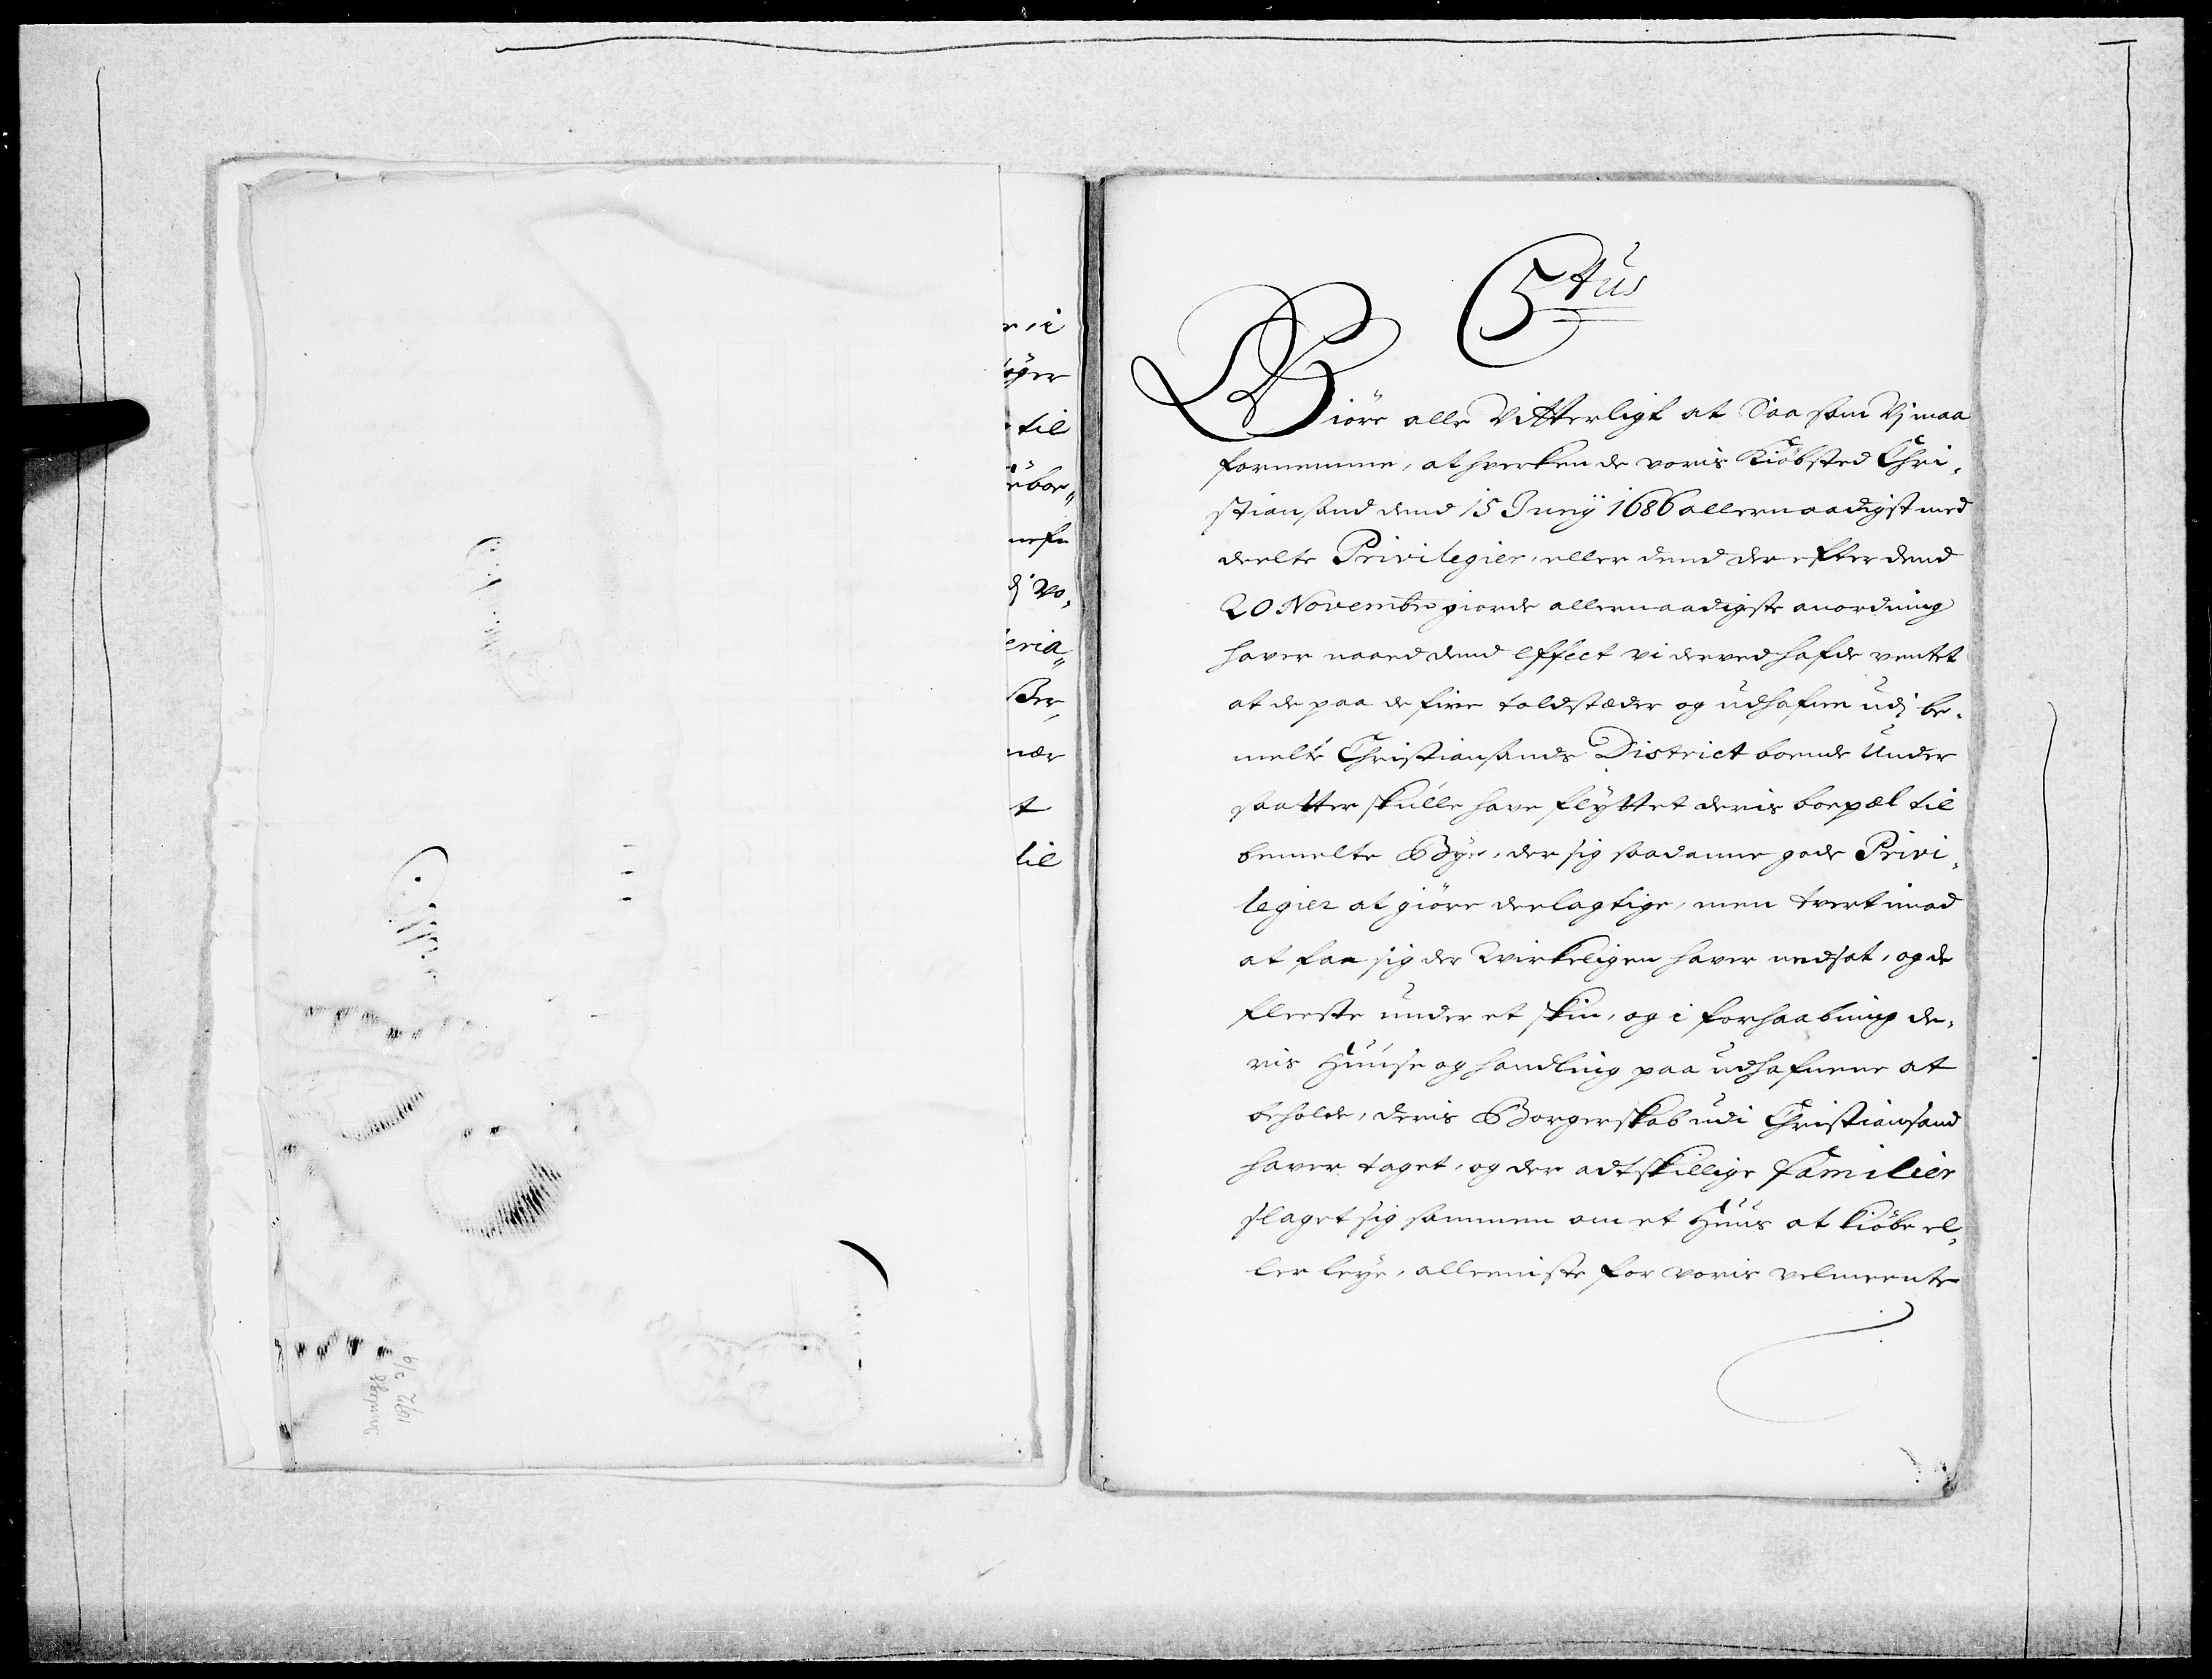 r, i
øger
til
ebor„
nefn
dj vo,
eria„
Ber,
nær
t
til
1692 9/6
Bemeldte
C5tus
Giöre alle Vitterligt at Saa som Vj maa
fornemme, at hverken de voris Kiöbsted Chri,
stiansand dend 15 Junÿ 1686 allernaadigst med
deelte Privilegier, eller dend der efter dend
20 Novembr giorde allernaadigste anordning
hafver naaed dend effect vi derved hafde ventet
at de paa de fire toldstæder og udhafne udj be,
melte Christiansands District boende Under
saatter skulle have flÿttet deris boepæl til
bemelte Bÿe, der sig saadanne gode Privi,
legier at giöre deelagtige, men tvert imod
at faa sig der Wirkeligen haver nedsat, og de
fleeste under et skin, og i forhaabning de,
ris Huuse og handling paa udhafnene at
beholde, deris Borgerskab udi Christiansand
haver taget, og der adtskillige familier
slaget sig sammen om et Huus at kiöbe el,
ler leÿe, alleeniste for voris velmeente